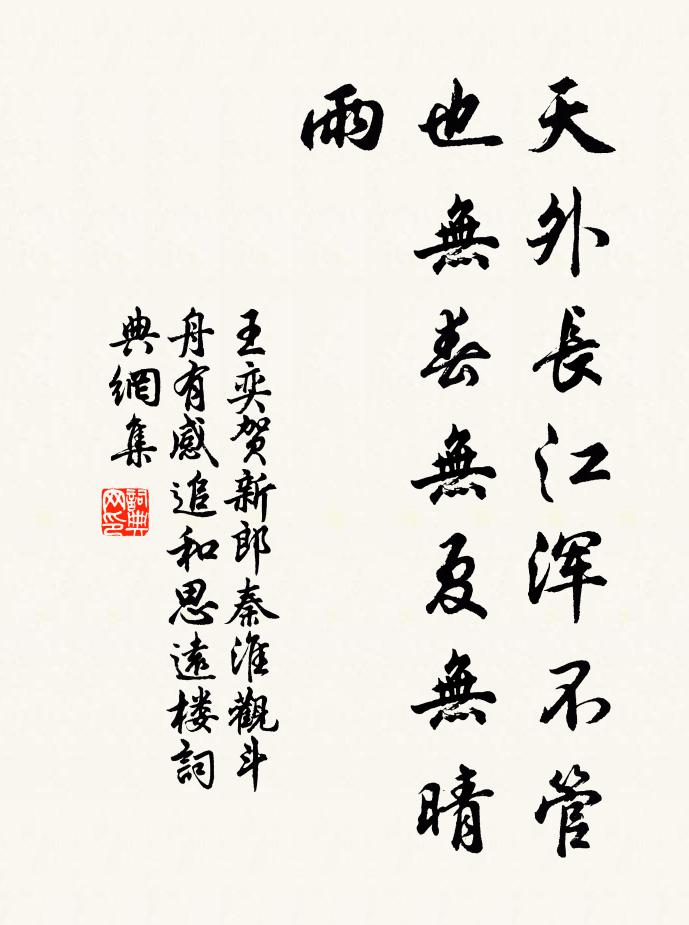 天外長江浑不管
也無春無夏無晴
雨
王奕贺新郎秦淮觀斗
舟有感追和思遠楼詞
典網集
詞典
网印